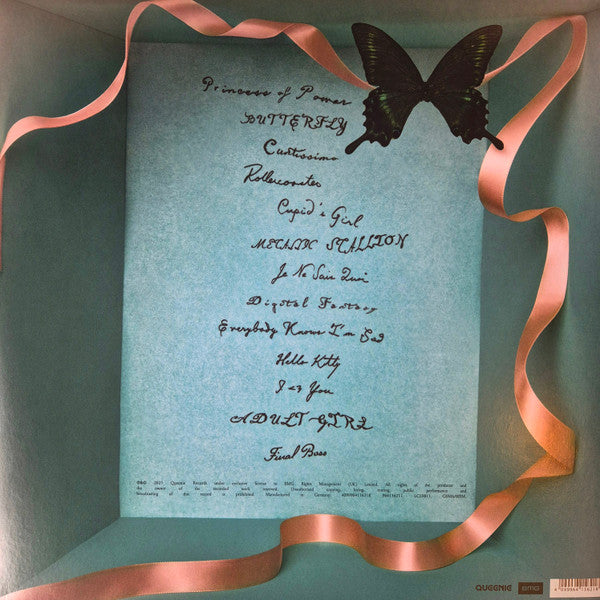 Princess of Power
BUTTERFLY
Cuntissimo
Rollercoaster
Cupid's Girl
METALLIC STALLION
Je Ne Sais Quoi
Digital Fantasy
Everybody Knows I'm Sad
Hello Kitty
I <3 You
ADULT GIRL
Final Boss
2025 Queenie Records under exclusive licence to BMG Rights Management (UK) Limited. All rights of the producer and
the owner of the recorded work reserved. Unauthorised copying, hiring, renting, public performance and
broadcasting of this record is prohibited. Manufactured in Germany.
QUEENIE BMG